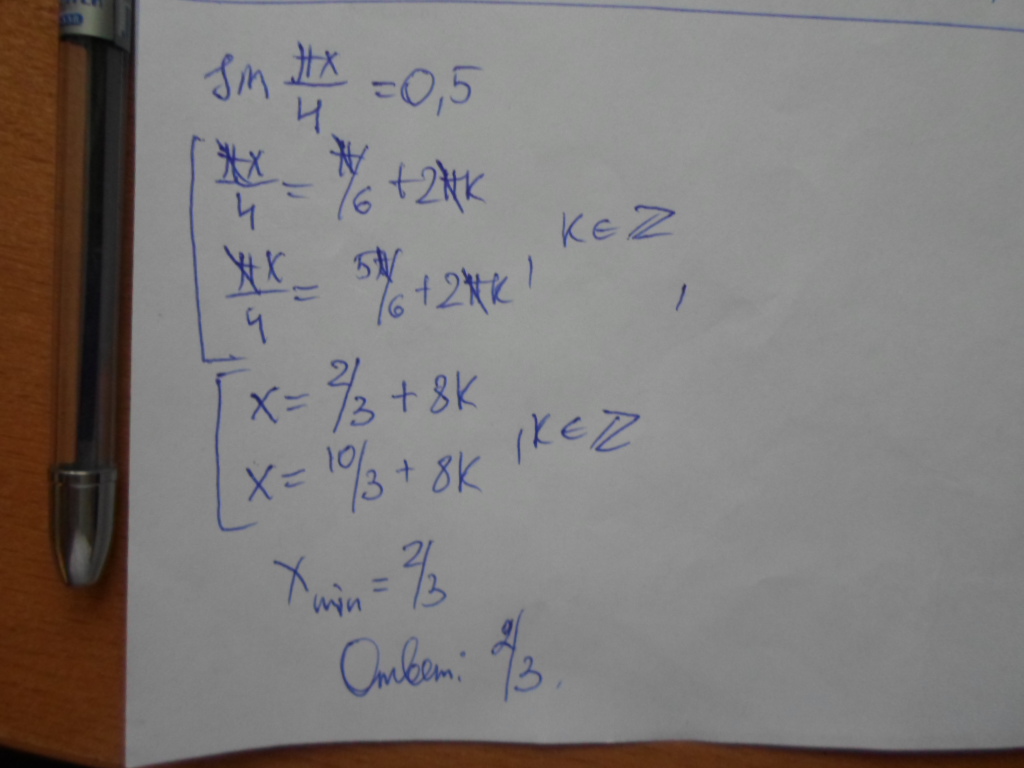 sin πx/4 = 0,5
πx/4 = π/6 + 2πk
πx/4 = 5π/6 + 2πk , k ∈ ℤ
x = 2/3 + 8k
x = 10/3 + 8k , k ∈ ℤ
x min = 2/3
Ответ: 2/3.